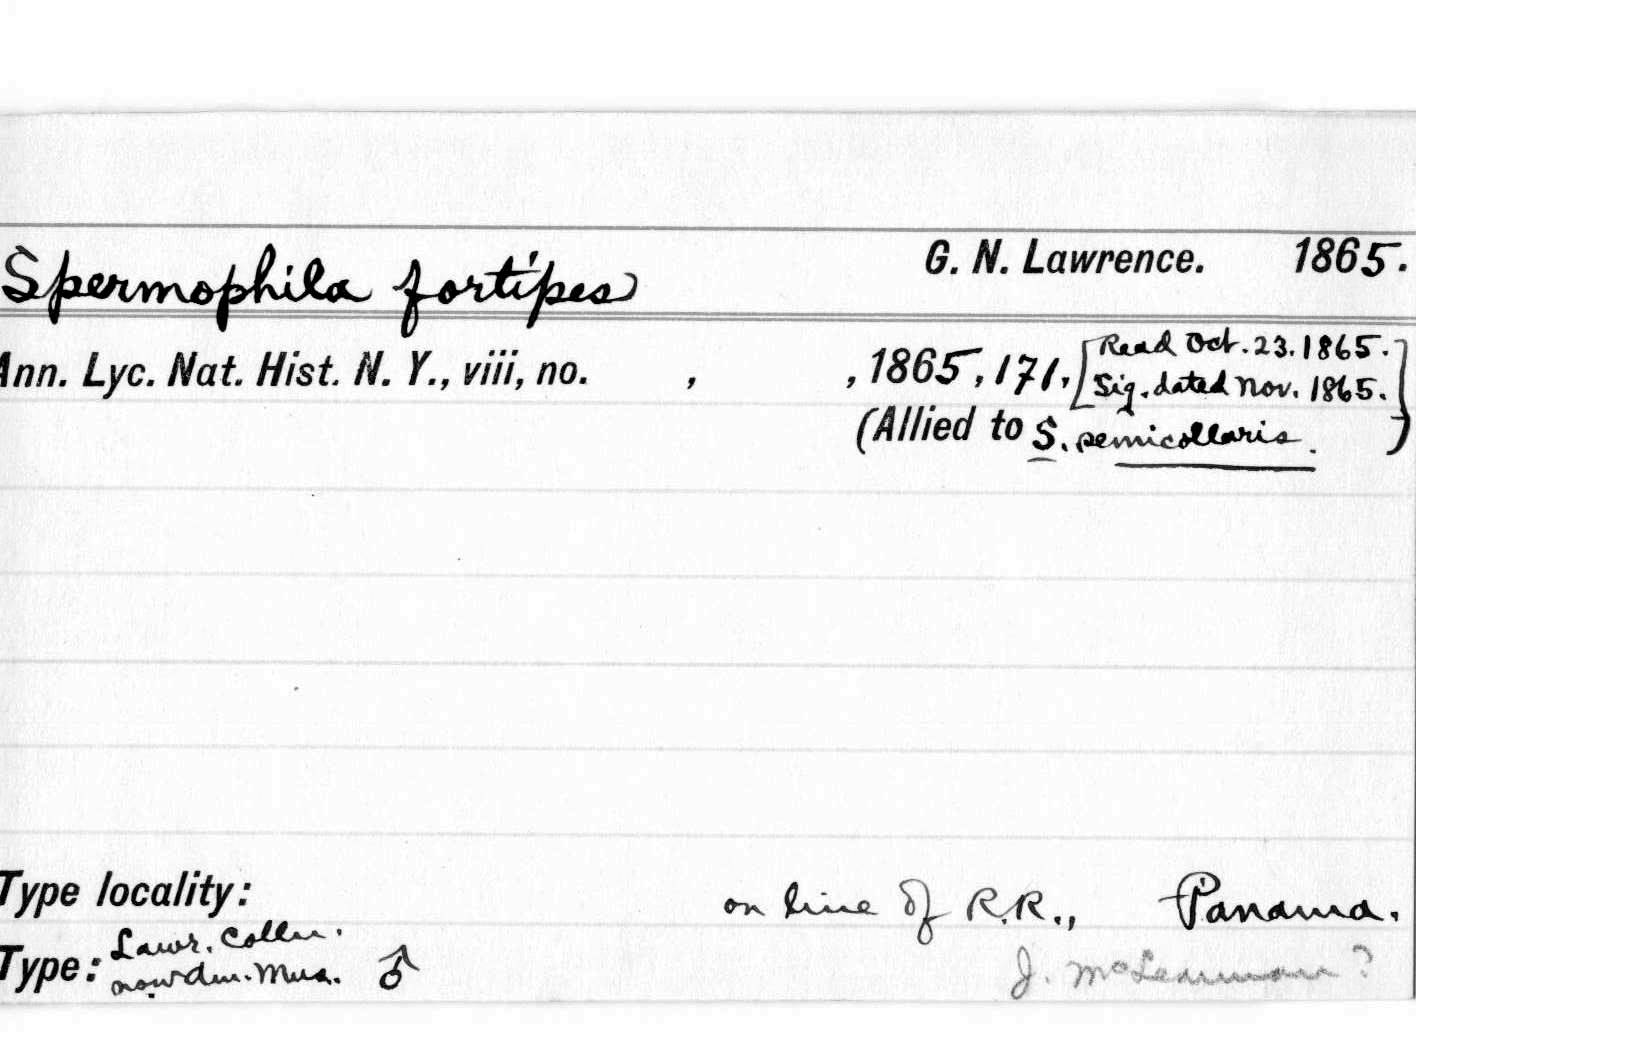 Spermophila fortipes G. N. Lawrence. 1865.
Ann. Lyc. Nat. Hist. N. Y., viii, no. , , 1865, 171, [Read Oct. 23. 1865.
Sig. dated Nov. 1865.]
(Allied to S. semicollaris. )
Type locality: on line of R.R., Panama.
Type: Lawr. Colln.
now Am. Mus. ♂
J. McLeannan?